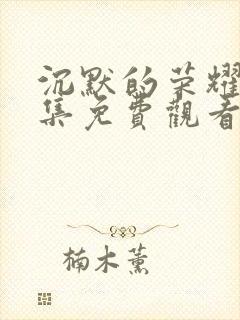 沉默的荣耀
集免費觀看
楠木薰